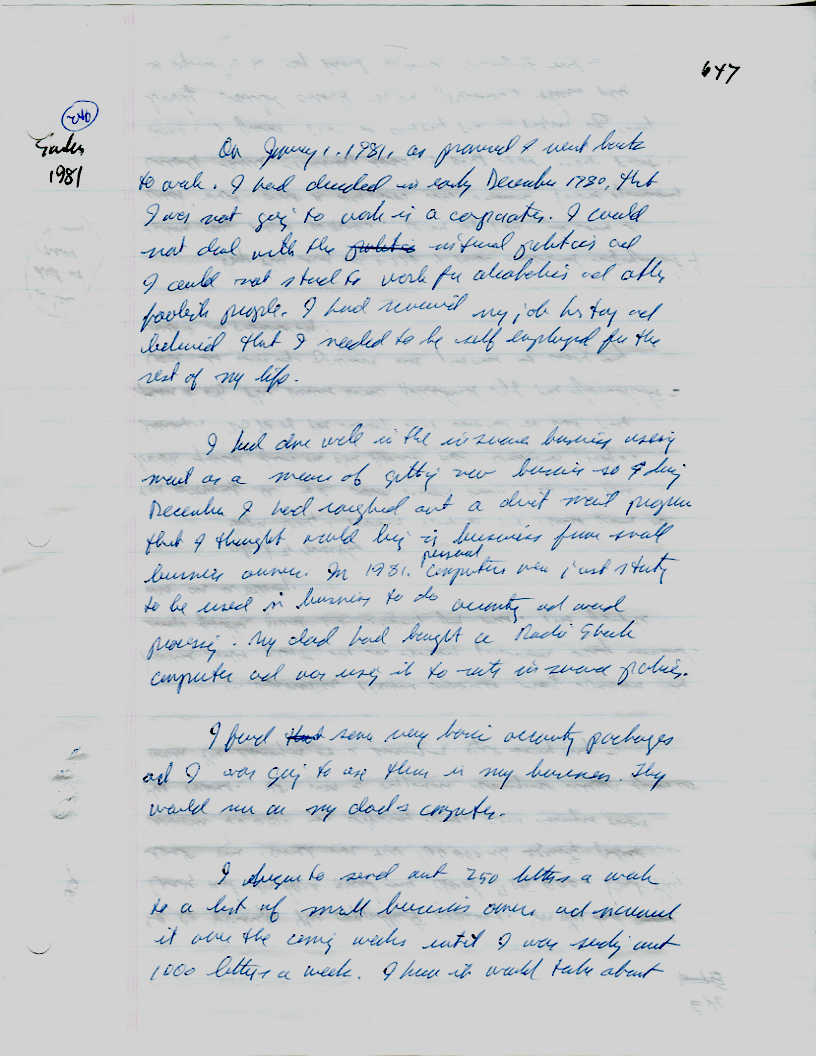 647
240
1981
On January 1, 1981, as promised I went back
to work. I had decided in early December 1980, that
I was not going to work in a corporation. I could
not deal with the politics internal politics and
I could not stand to work for alcoholics and other
foolish people. I had reviewed my job history and
believed that I needed to be self employed for the
rest of my life.
I had done well in the insurance business using
mail as a means of getting new business so during
December I had roughed out a direct mail program
that I thought would bring in business from small
business owners. In 1981, personal computers were just starting
to be used in business to do accounting and word
processing. My dad had bought a Radio Shack
computer and was using it to rate insurance policies.
I found that some very basic accounting packages
and I was going to use them in my business. They
would run on my dad's computer.
I began to send out 250 letters a week
to a list of small business owners and increased
it over the coming weeks until I was sending out
1000 letters a week. I knew it would take about